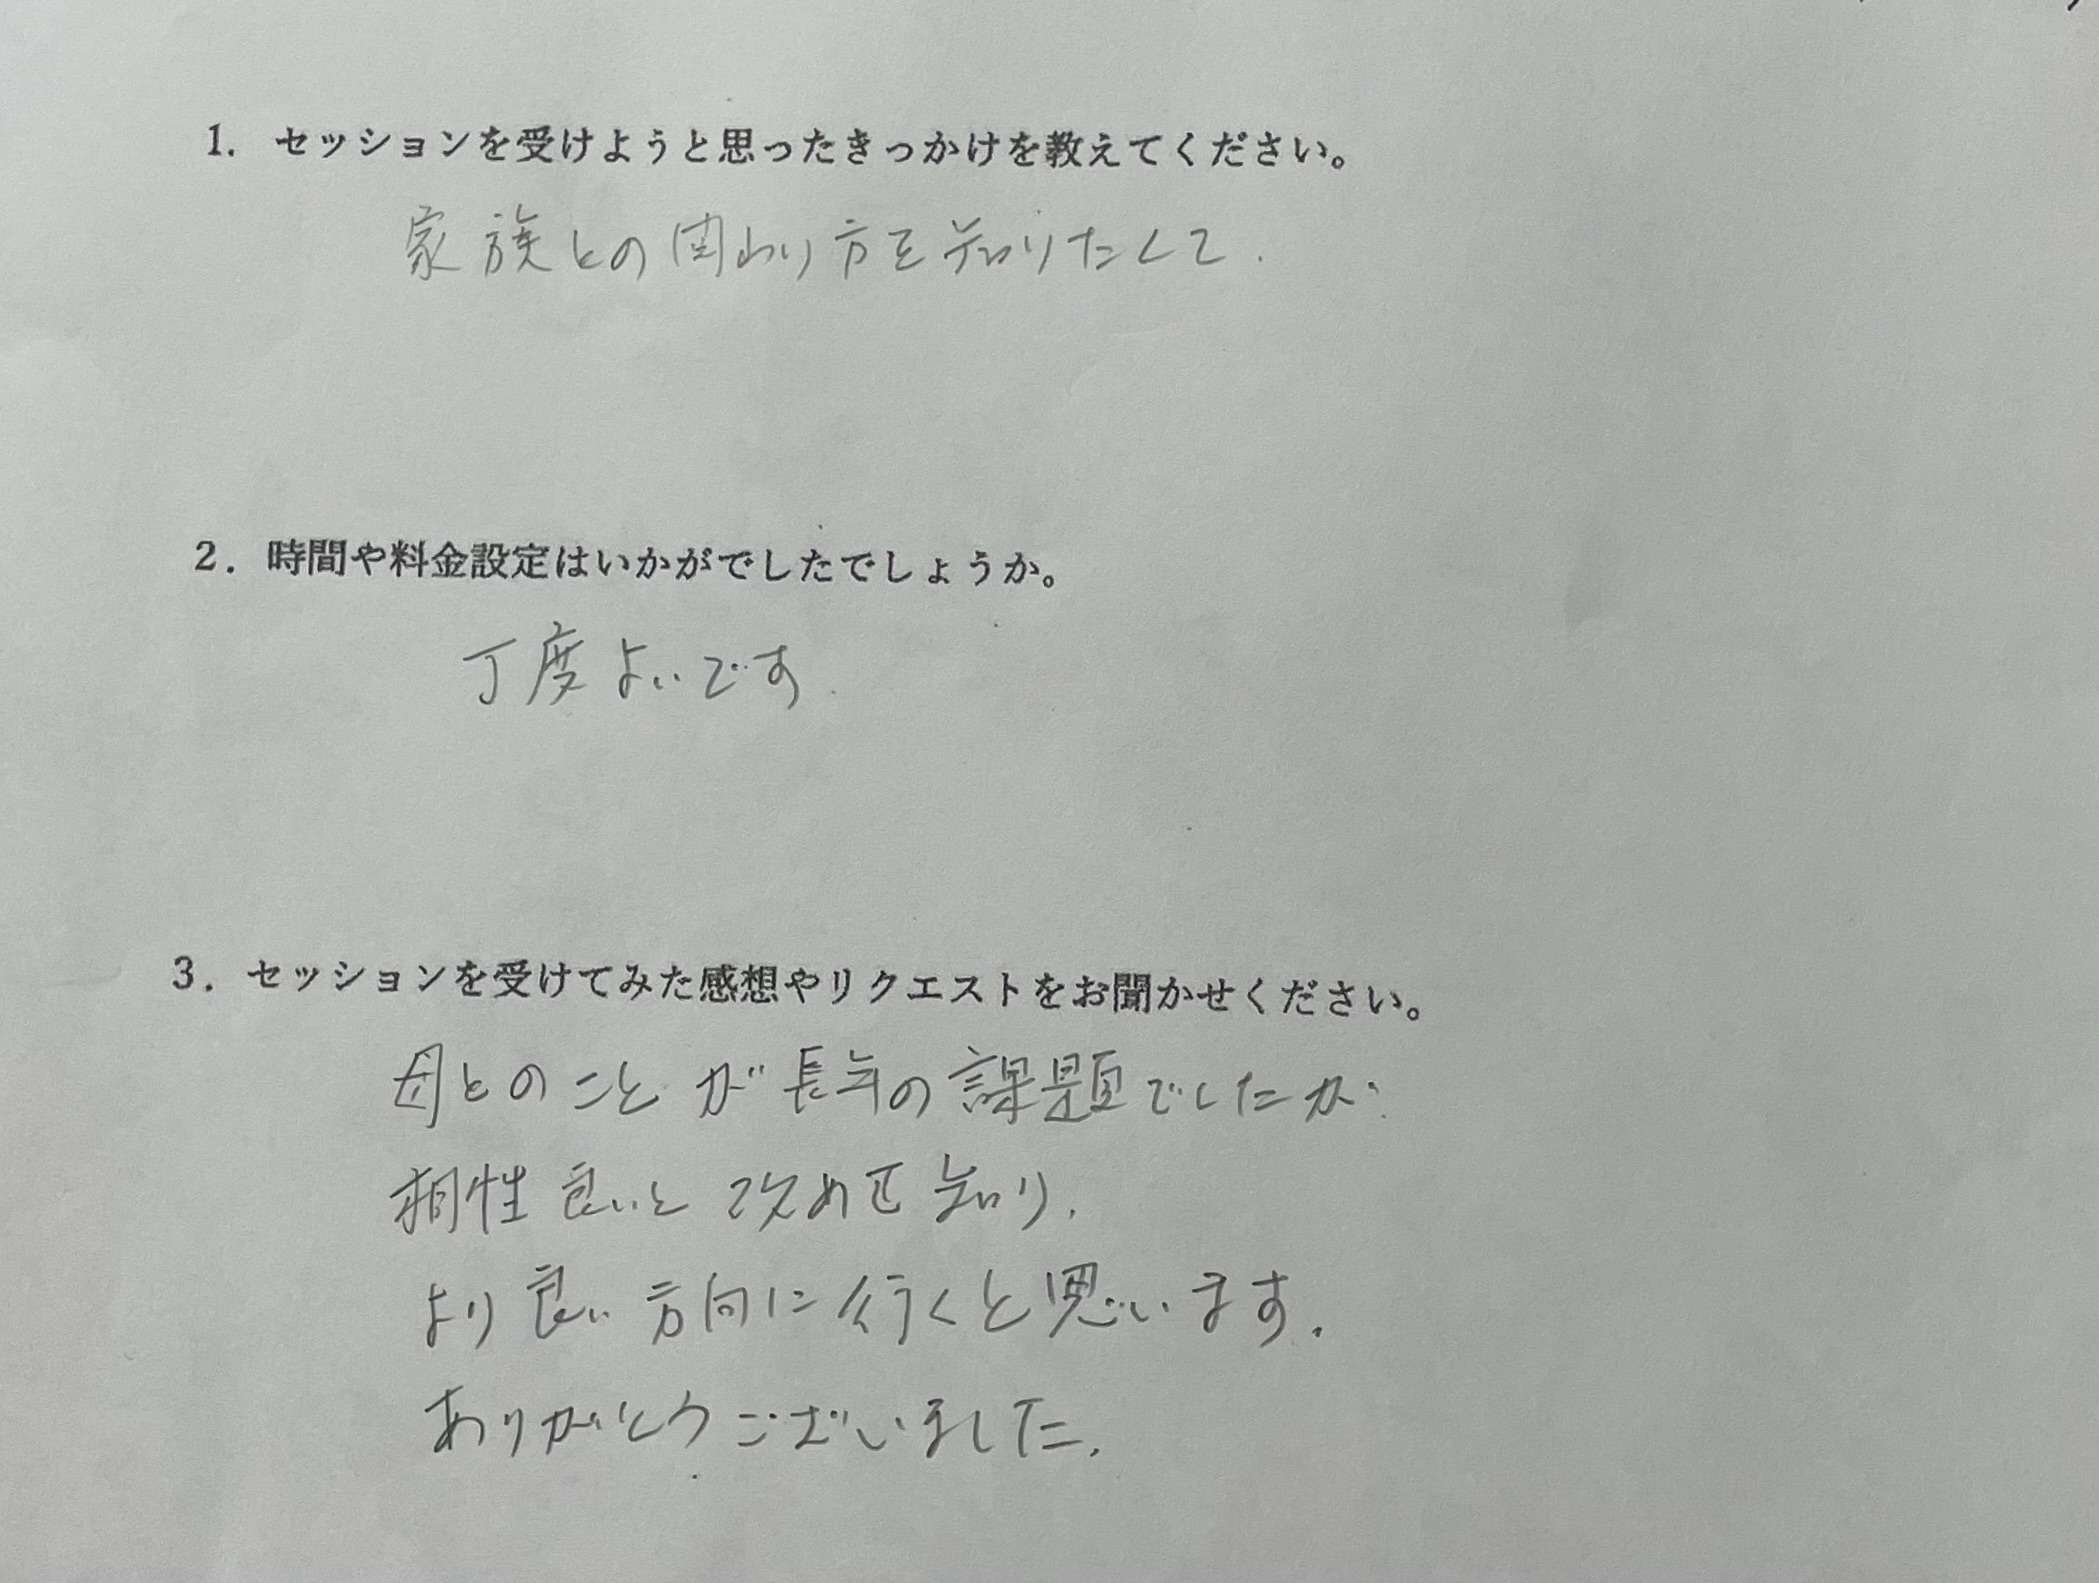 1. セッションを受けようと思ったきっかけを教えてください。
家族との関わり方を知りたくて.
2. 時間や料金設定はいかがでしたでしょうか。
丁度よいです.
3. セッションを受けてみた感想やリクエストをお聞かせください。
母とのことが長年の課題でしたが
相性良いと改めて知り、
より良い方向に行くと思います.
ありがとうございました.